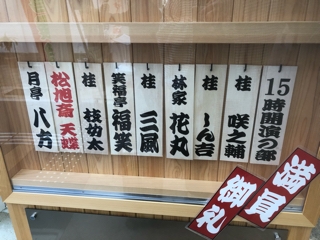 15時開演の部
桂 咲之輔
桂 しん吉
林家 花丸
桂 三風
笑福亭 福笑
桂 枝女太
松旭斎 天蝶
月亭 八方
満員
御礼